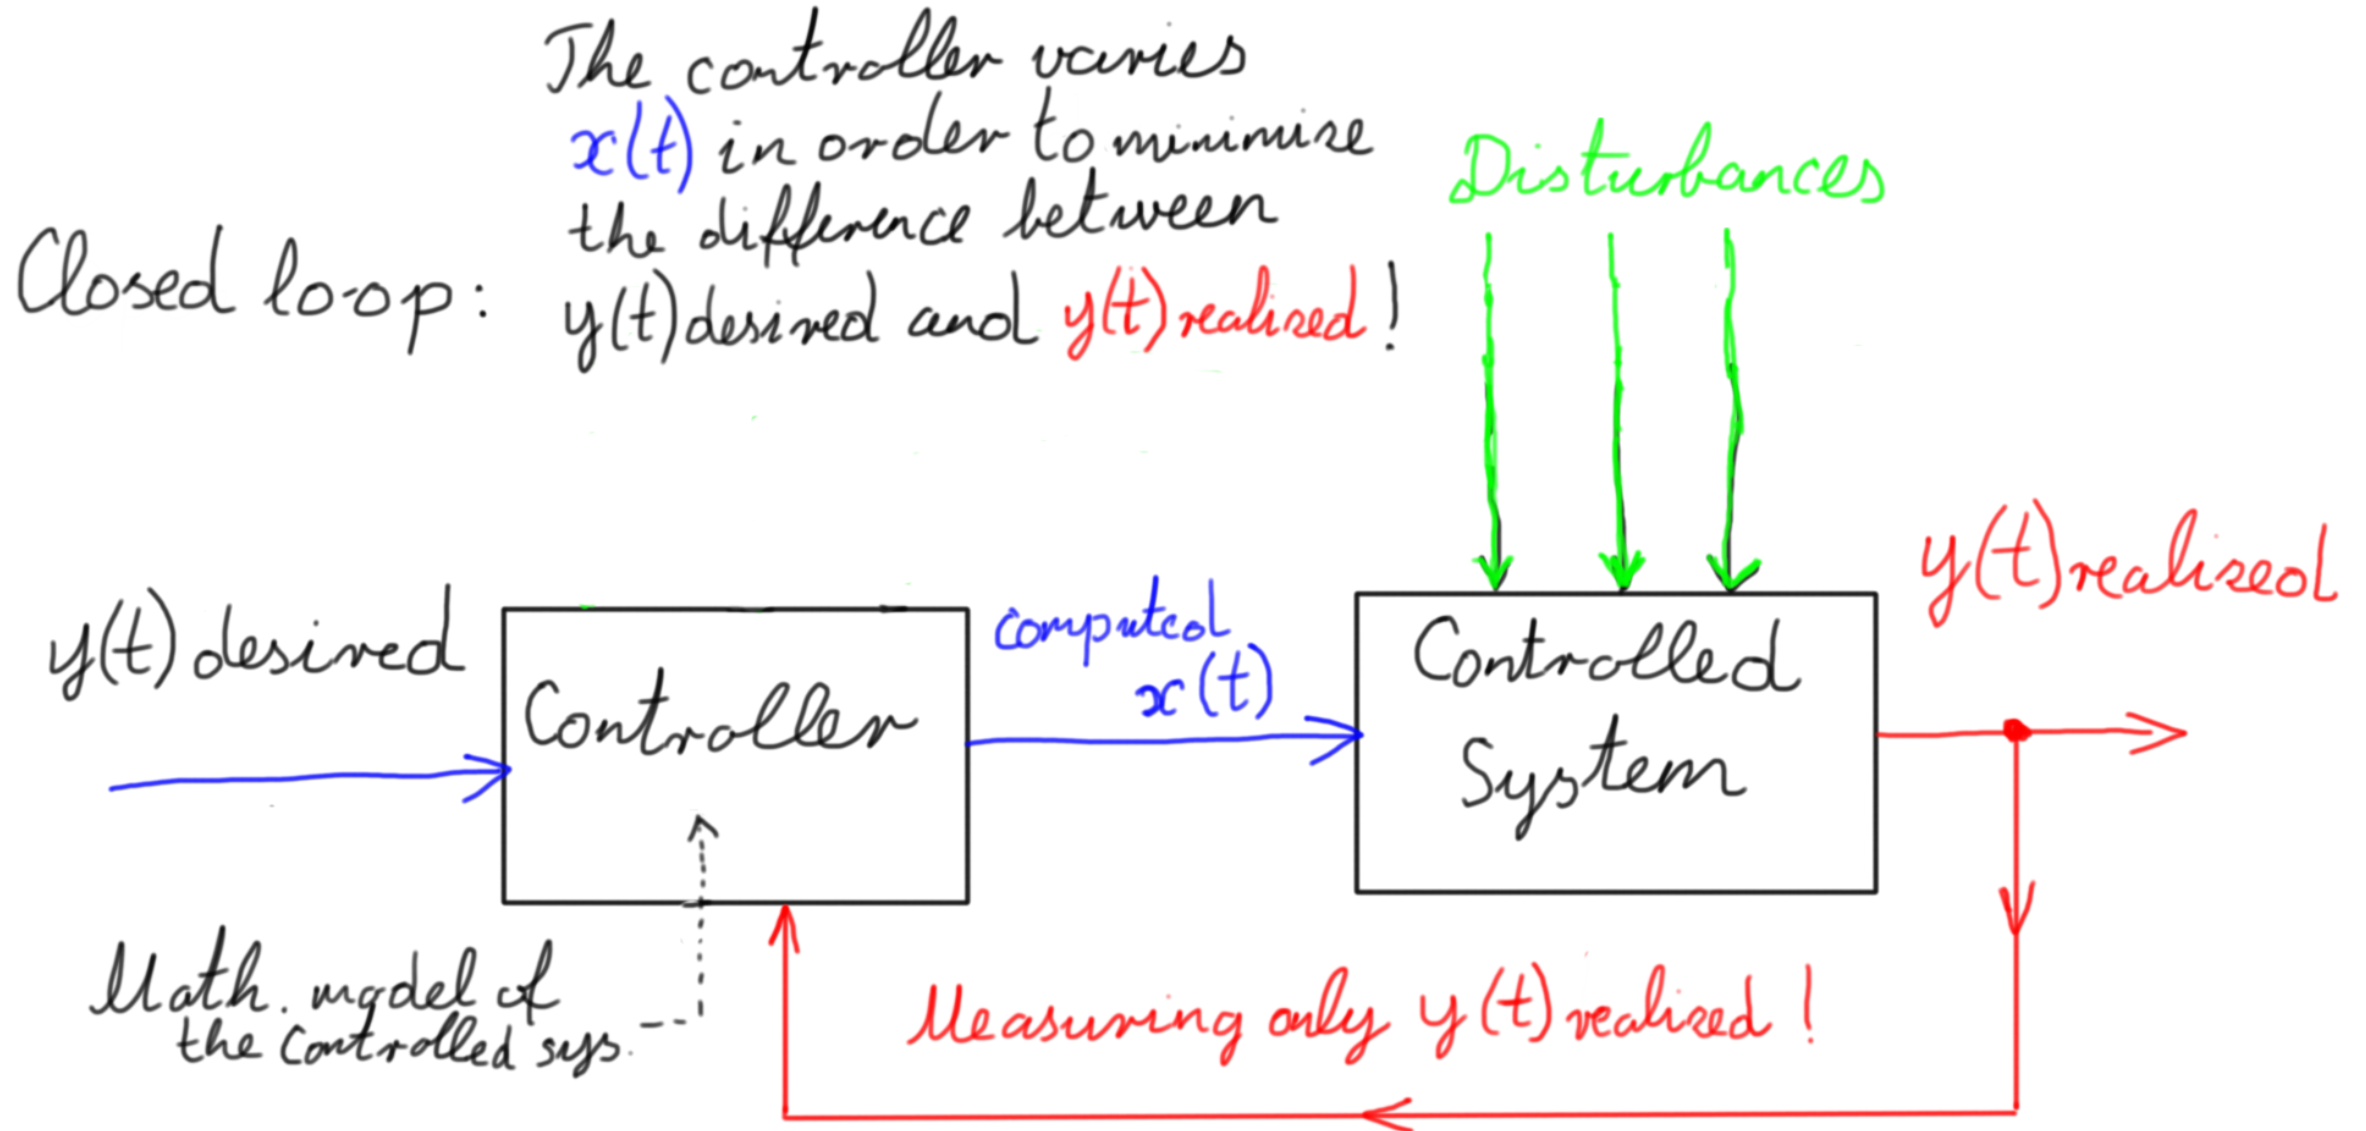 The controller varies
x(t) in order to minimise
the difference between
Closed loop: y(t) desired and y(t) realised!
Disturbances
y(t) desired
Controller
computed
x(t)
Controlled
System
y(t) realised
Math. model of
the controlled sys.
Measuring only y(t) realised!